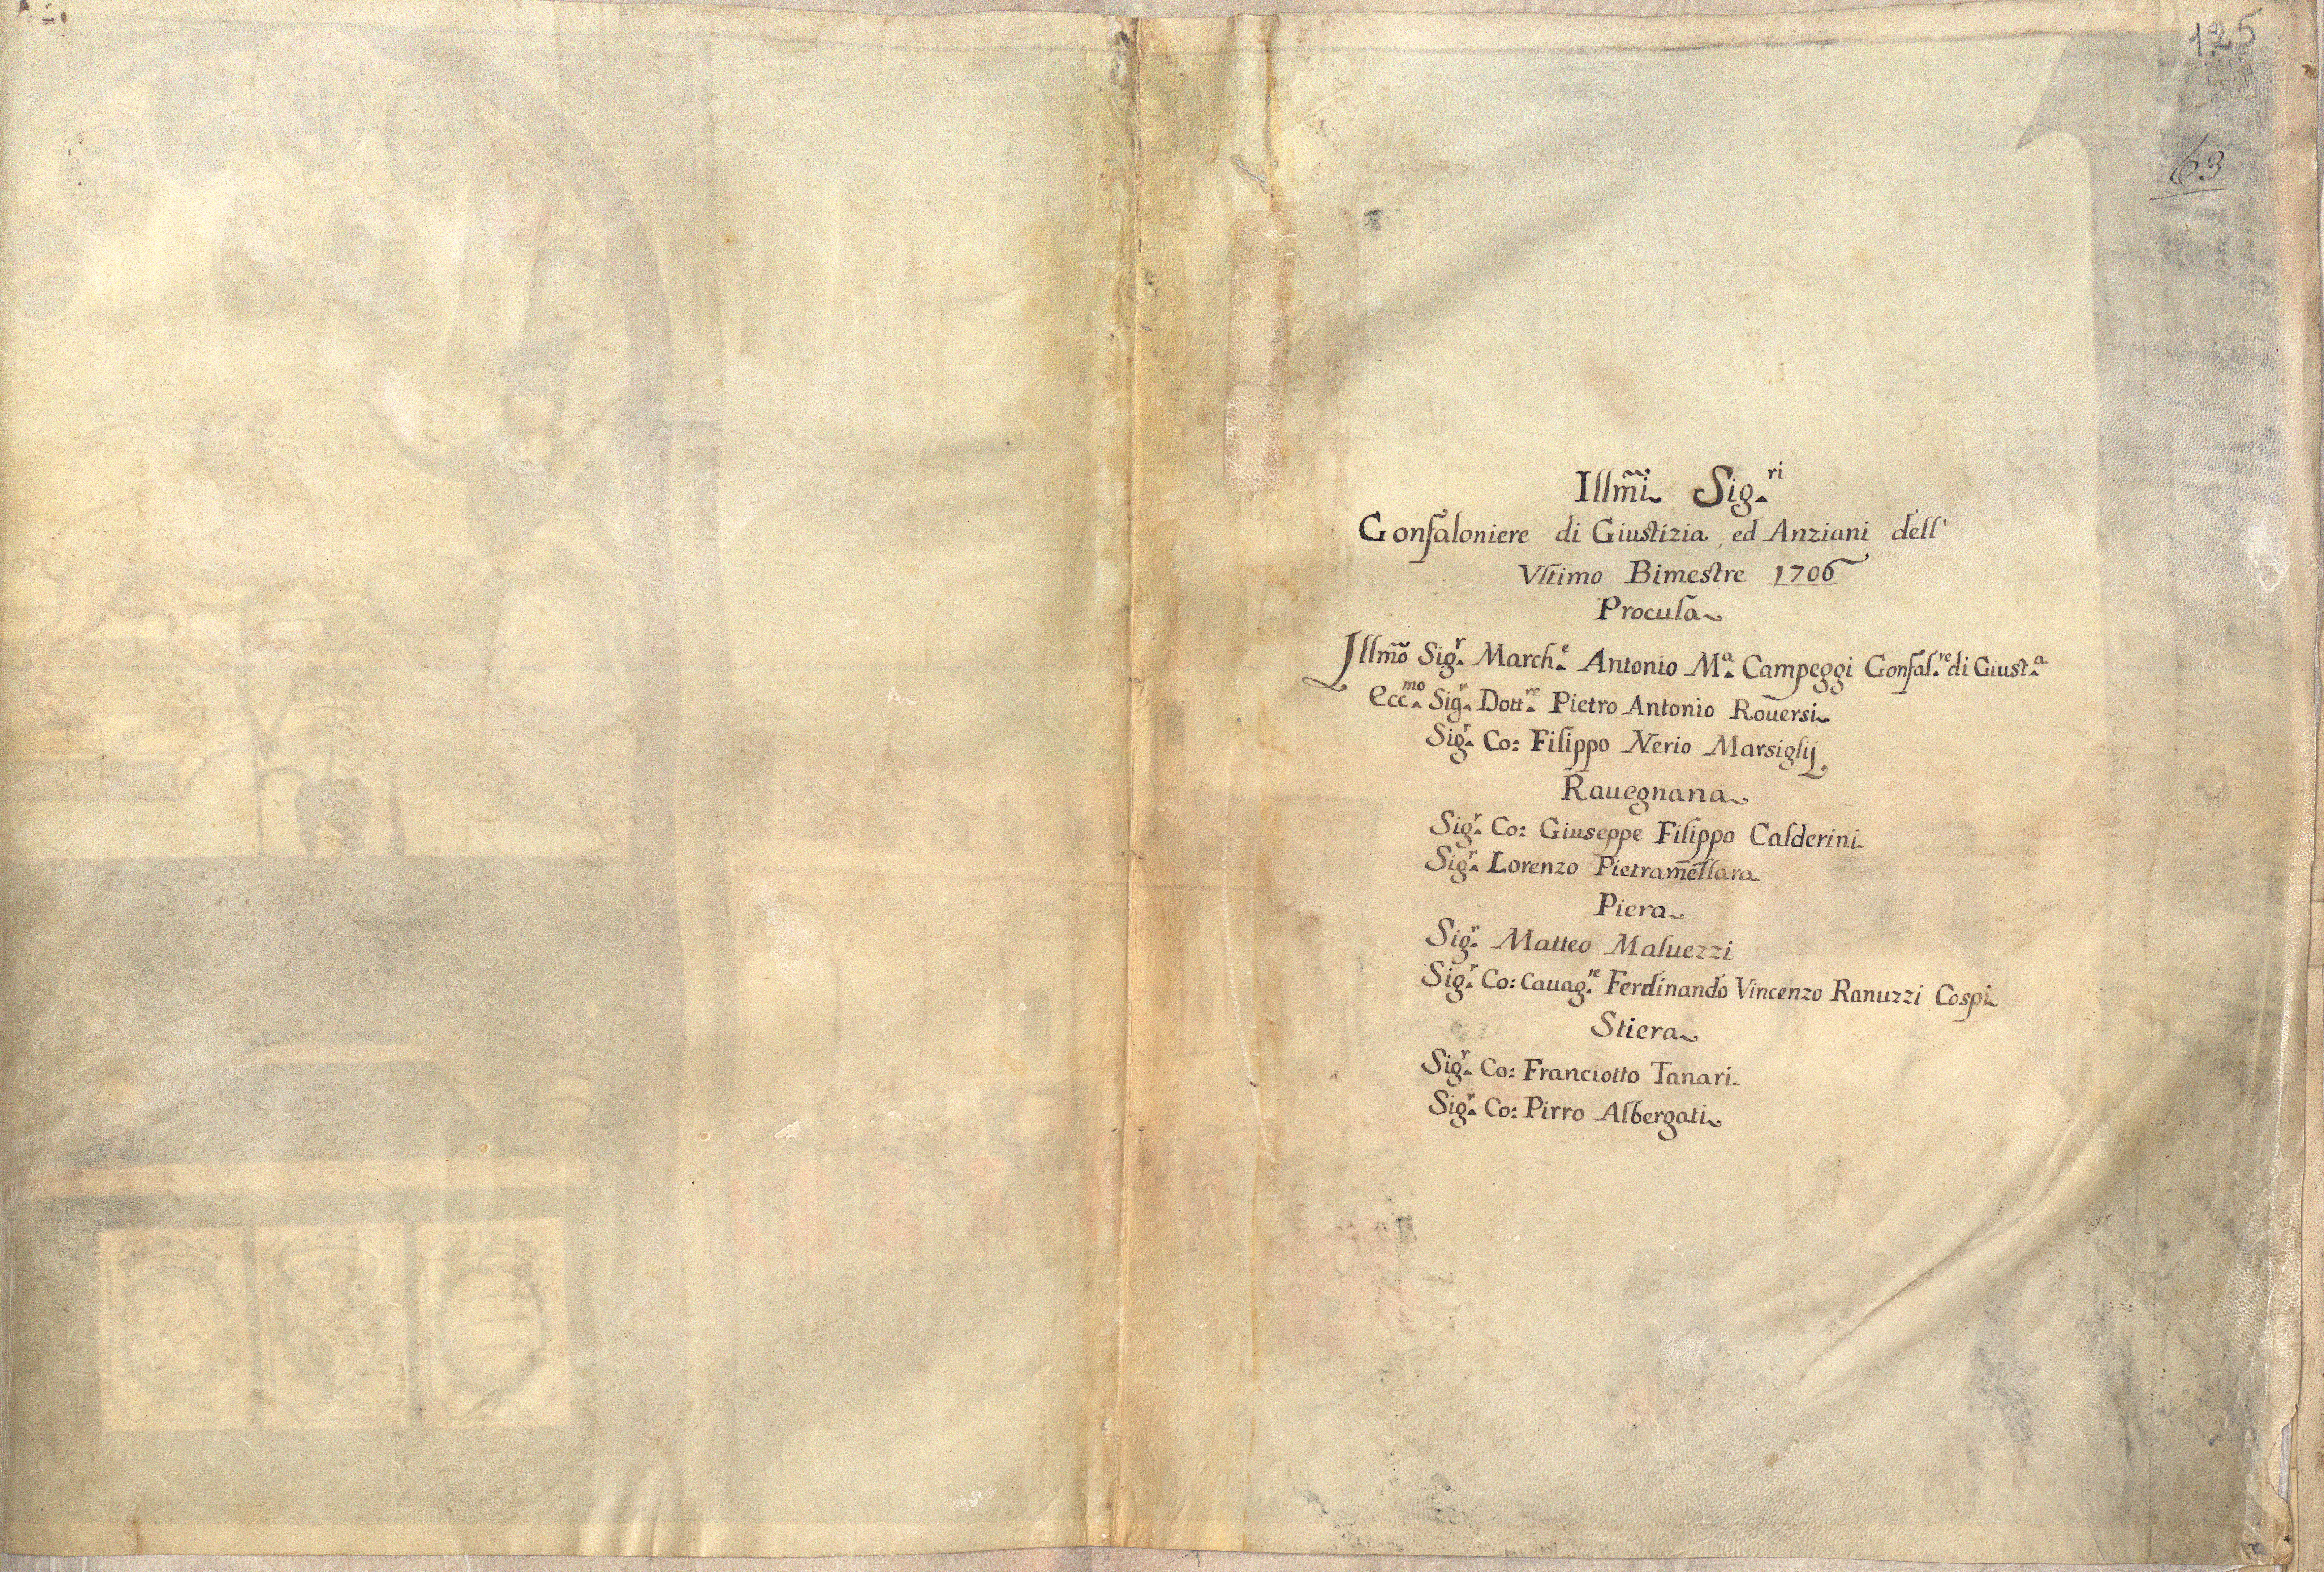 125
63
Illm̃i Sig.ri
Gonfaloniere di Giustizia, ed Anziani dell'
Vltimo Bimestre 1706
Procula
Illm̃o Sig.r March.e Antonio M.a Campeggi Gonfal.re di Giust.a
Ecc.mo Sig.r Dott.re Pietro Antonio Rouersi
Sig.r Co: Filippo Nerio Marsiglij
Rauegnana
Sig.r Co: Giuseppe Filippo Calderini
Sig.r Lorenzo Pietramellara
Piera
Sig.r Matteo Maluezzi
Sig.r Co: Cauag.re Ferdinando Vincenzo Ranuzzi Cospi
Stiera
Sig.r Co: Franciotto Tanari
Sig.r Co: Pirro Albergati